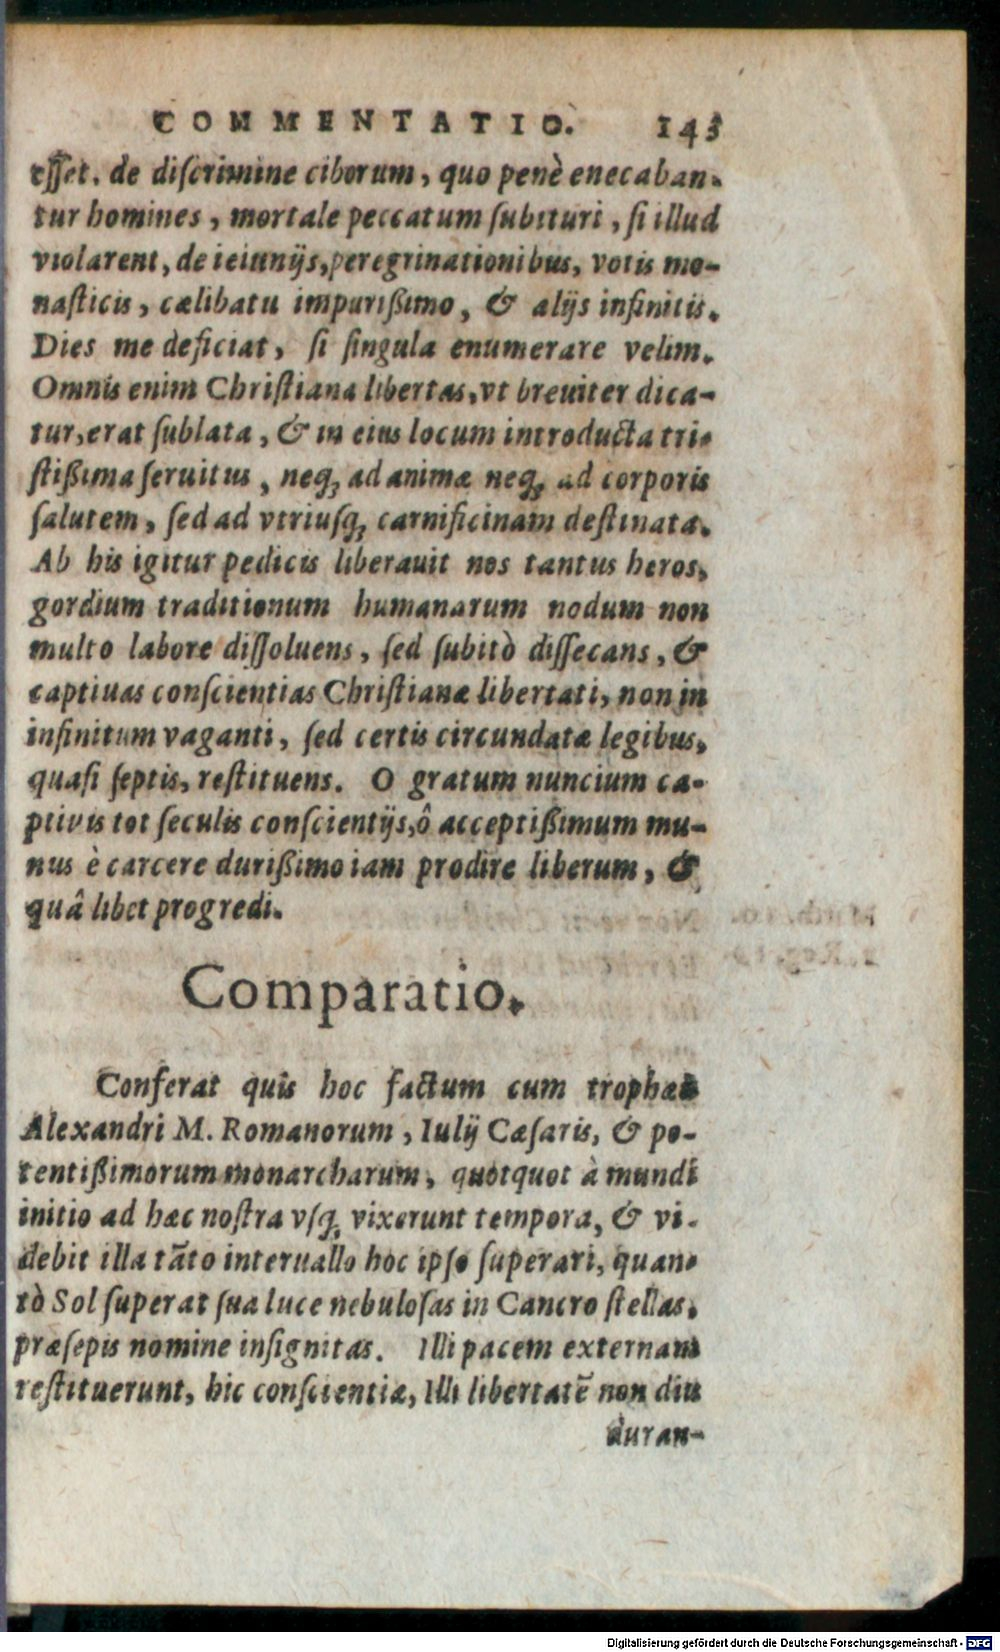 COMMENTATIO. 143
eſſet. de diſcrimine ciborum, quo penè enecaban-
tur homines, mortale peccatum ſubituri, ſi illud
violarent, de ieiunijs, peregrinationibus, votis mo-
naſticis, cælibatu impurißimo, & alijs infinitis.
Dies me deficiat, ſi ſingula enumerare velim.
Omnis enim Chriſtiana libertas, vt breuiter dica-
tur, erat ſublata, & in eius locum introducta tri-
ſtißima ſeruitus, neq; ad animæ neq; ad corporis
ſalutem, ſed ad vtriuſq; carnificinam deſtinata.
Ab his igitur pedicis liberauit nos tantus heros,
gordium traditionum humanarum nodum non
multo labore diſſoluens, ſed ſubitò diſſecans, &
captiuas conſcientias Chriſtianæ libertati, non in
infinitum vaganti, ſed certis circundatæ legibus,
quaſi ſeptis, reſtituens. O gratum nuncium ca-
ptivis tot ſeculis conſcientijs, ô acceptißimum mu-
nus è carcere durißimo iam prodire liberum, &
quâ libet progredi.
Comparatio.
Conferat quis hoc factum cum trophæis
Alexandri M. Romanorum, Iulij Cæſaris, & po-
tentißimorum monarcharum, quotquot à mundi
initio ad hæc noſtra vſq; vixerunt tempora, & vi-
debit illa tāto interuallo hoc ipſo ſuperari, quan-
tò Sol ſuperat ſua luce nebuloſas in Cancro ſtellas,
præſepis nomine inſignitas. Illi pacem externam
reſtituerunt, hic conſcientiæ, Illi libertatē non diu
duran-
Digitalisierung gefördert durch die Deutsche Forschungsgemeinschaft - DFG